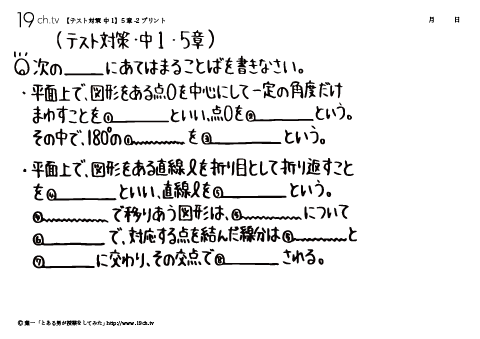 19 ch.tv 【テスト対策 中1】5章-2プリント 月 日
(テスト対策・中1・5章)
Q 次の____にあてはまることばを書きなさい。
・平面上で、図形をある点Oを中心にして一定の角度だけ
まわすことを①____といい、点Oを②____という。
その中で、180°の①____を③____という。
・平面上で、図形をある直線ℓを折り目として折り返すこと
を④____といい、直線ℓを⑤____という。
④____で移りあう図形は、⑤____について
⑥____で、対応する点を結んだ線分は⑤____と
⑦____に交わり、その交点で⑧____される。
©葉一 「とある男が授業をしてみた」 http://www.19ch.tv